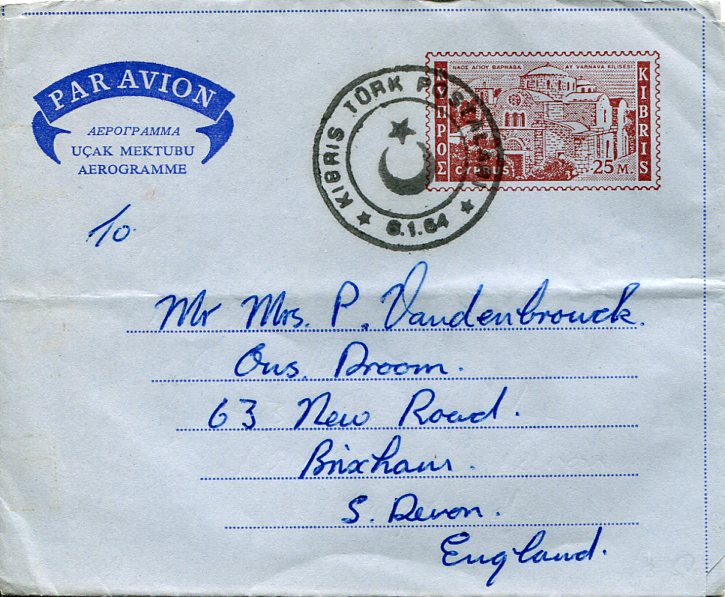 PAR AVION
ΑΕΡΟΓΡΑΜΜΑ
UÇAK MEKTUBU
AEROGRAMME
KIBRIS TÜRK POSTALARI
6.1.64
ΝΑΟΣ ΑΓΙΟΥ ΒΑΡΝΑΒΑ AY. VARNAVA KILISESI
ΚΥΠΡΟΣ
KIBRIS
CYPRUS
25 M.
To
Mr Mrs. P. Vandenbrouck.
Ons Droom.
63 New Road.
Brixham.
S. Devon.
England.